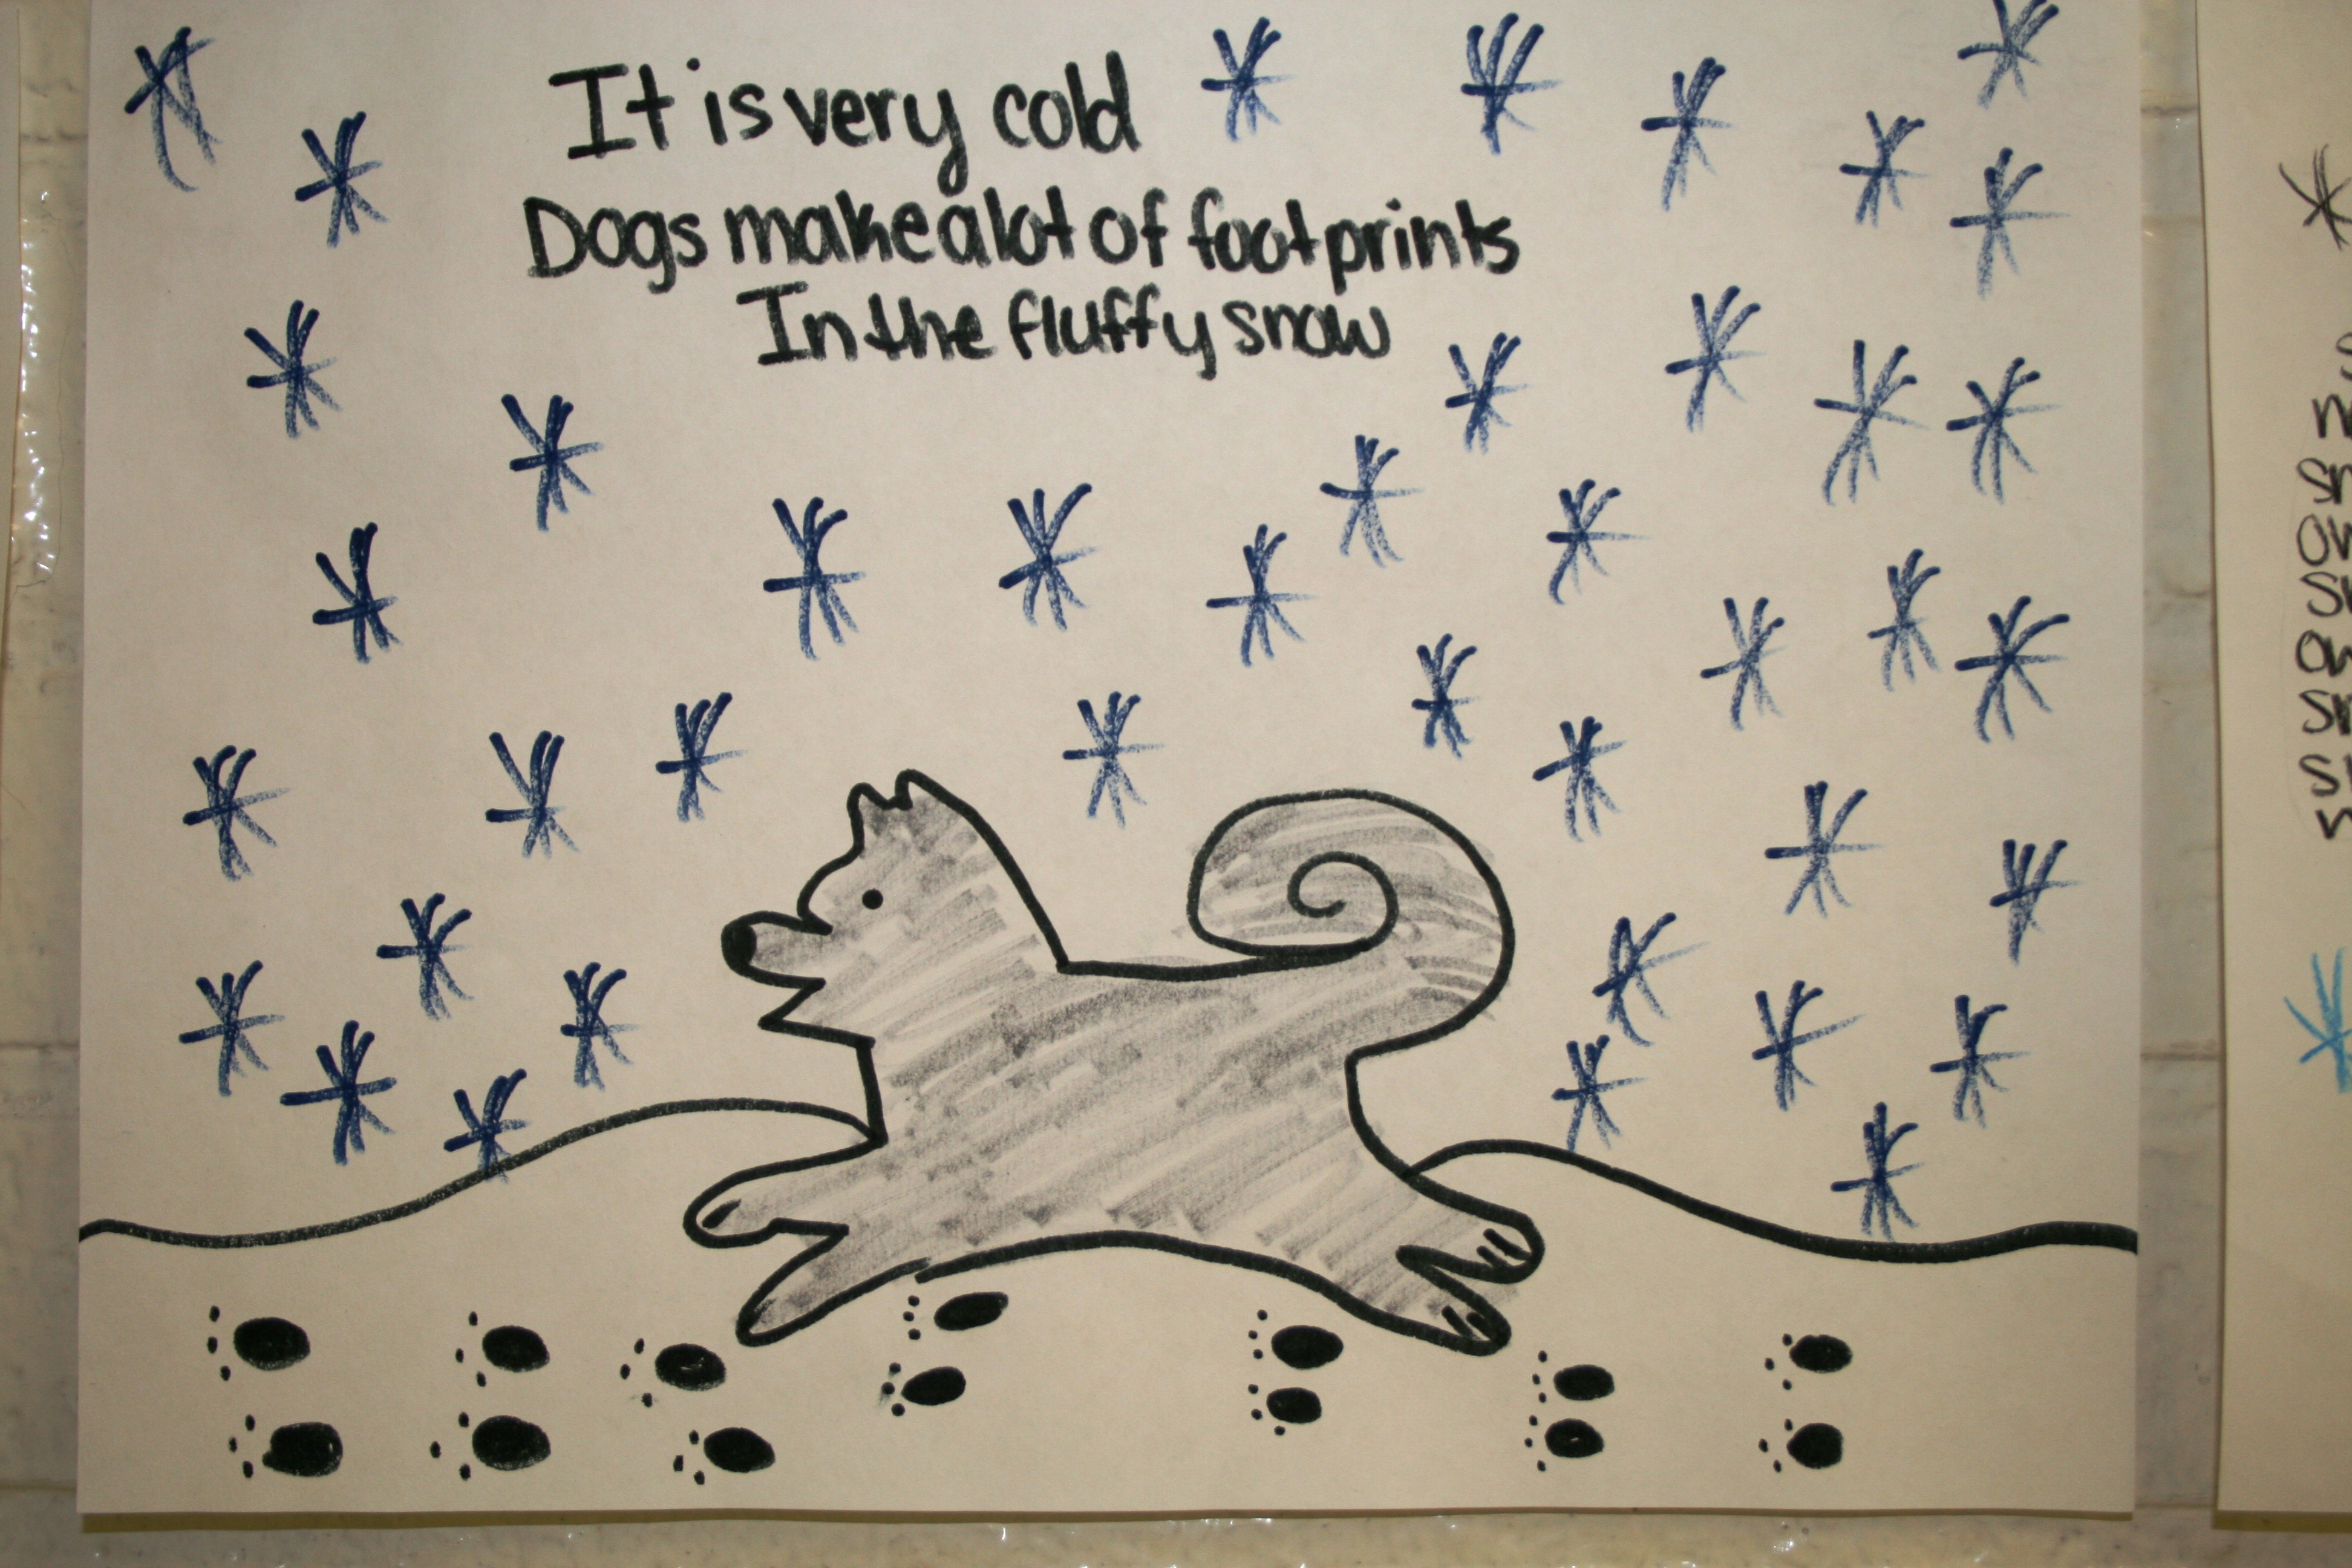 It is very cold
Dogs make a lot of footprints
In the fluffy snow